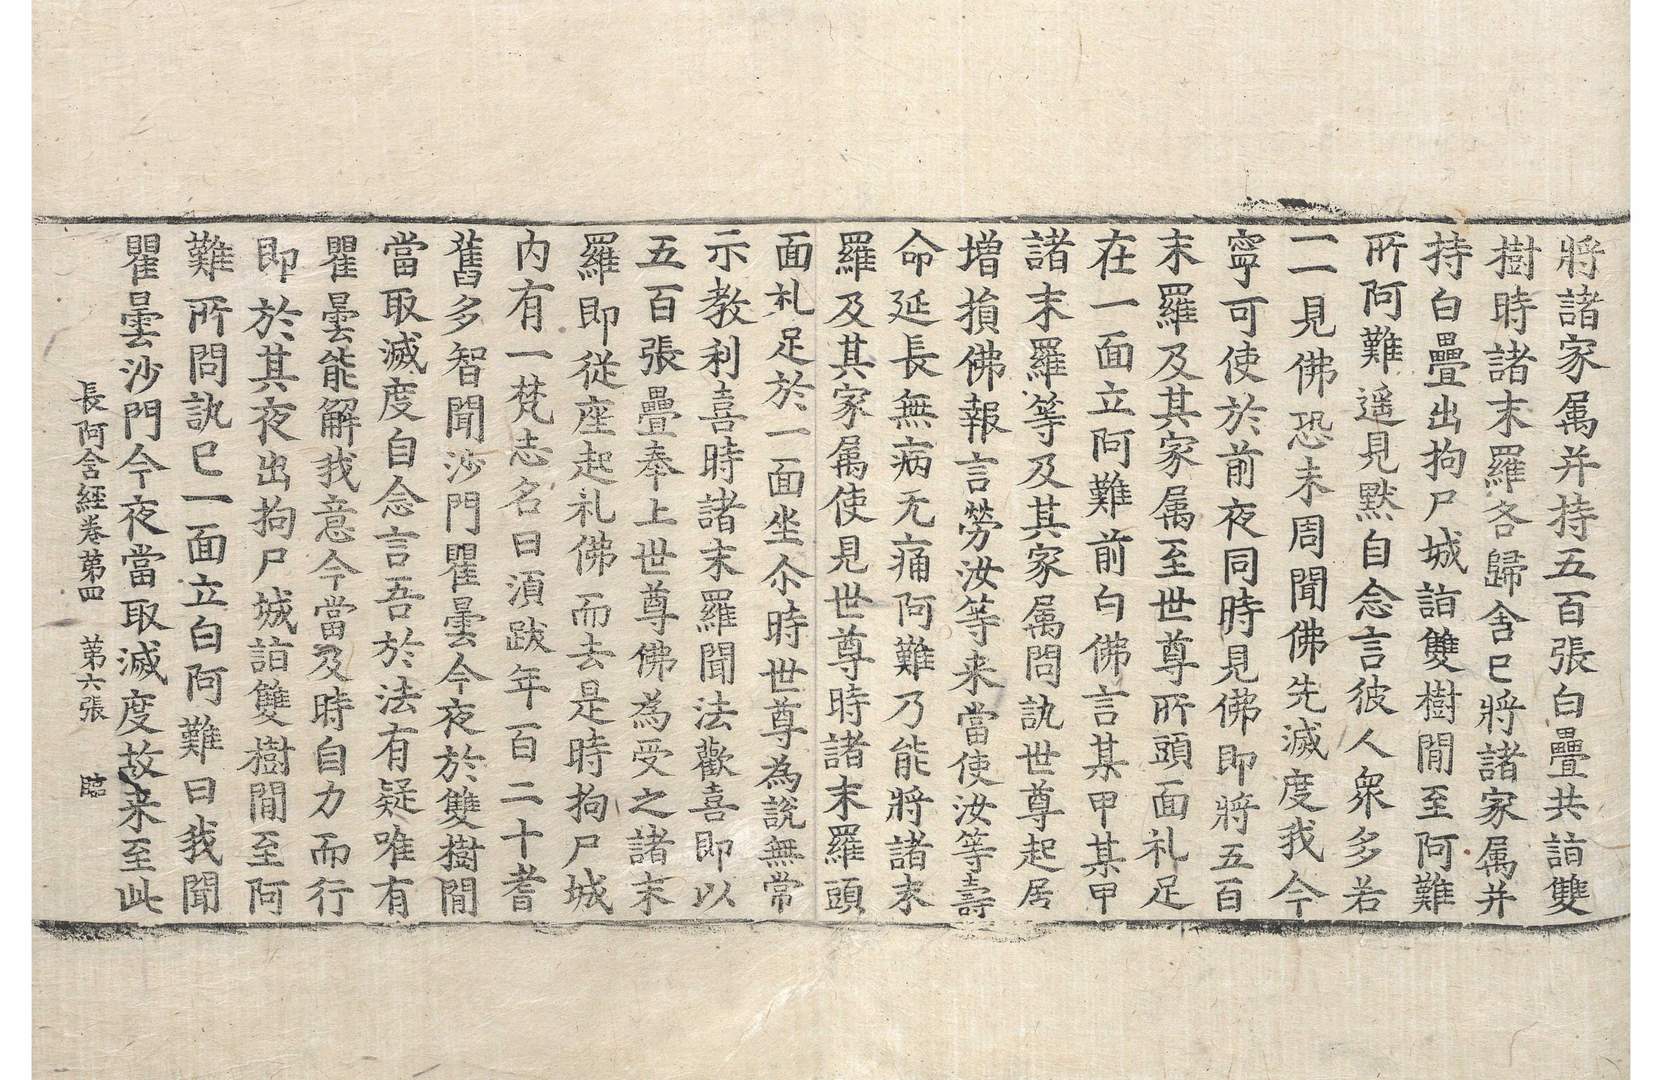 將諸家属并持五百張白疊共詣雙
樹時諸末羅各歸舍已將諸家属并
持白疊出拘尸城詣雙樹閒至阿難
所阿難遥見默自念言彼人衆多若
一一見佛恐未周聞佛先滅度我今
寧可使於前夜同時見佛即將五百
末羅及其家属至世尊所頭面礼足
在一面立阿難前白佛言某甲某甲
諸末羅等及其家属問訊世尊起居
增損佛報言勞汝等来當使汝等壽
命延長無病无痛阿難乃能將諸末
羅及其家属使見世尊時諸末羅頭
面礼足於一面坐尒時世尊為說無常
示教利喜時諸末羅聞法歡喜即以
五百張疊奉上世尊佛為受之諸末
羅即從座起礼佛而去是時拘尸城
内有一梵志名曰湏跋年百二十耆
舊多智聞沙門瞿曇今夜於雙樹閒
當取滅度自念言吾於法有疑唯有
瞿曇能解我意今當及時自力而行
即於其夜出拘尸城詣雙樹閒至阿
難所問訊已一面立白阿難曰我聞
瞿曇沙門今夜當取滅度故来至此
長阿含經卷第四 第六張 臨